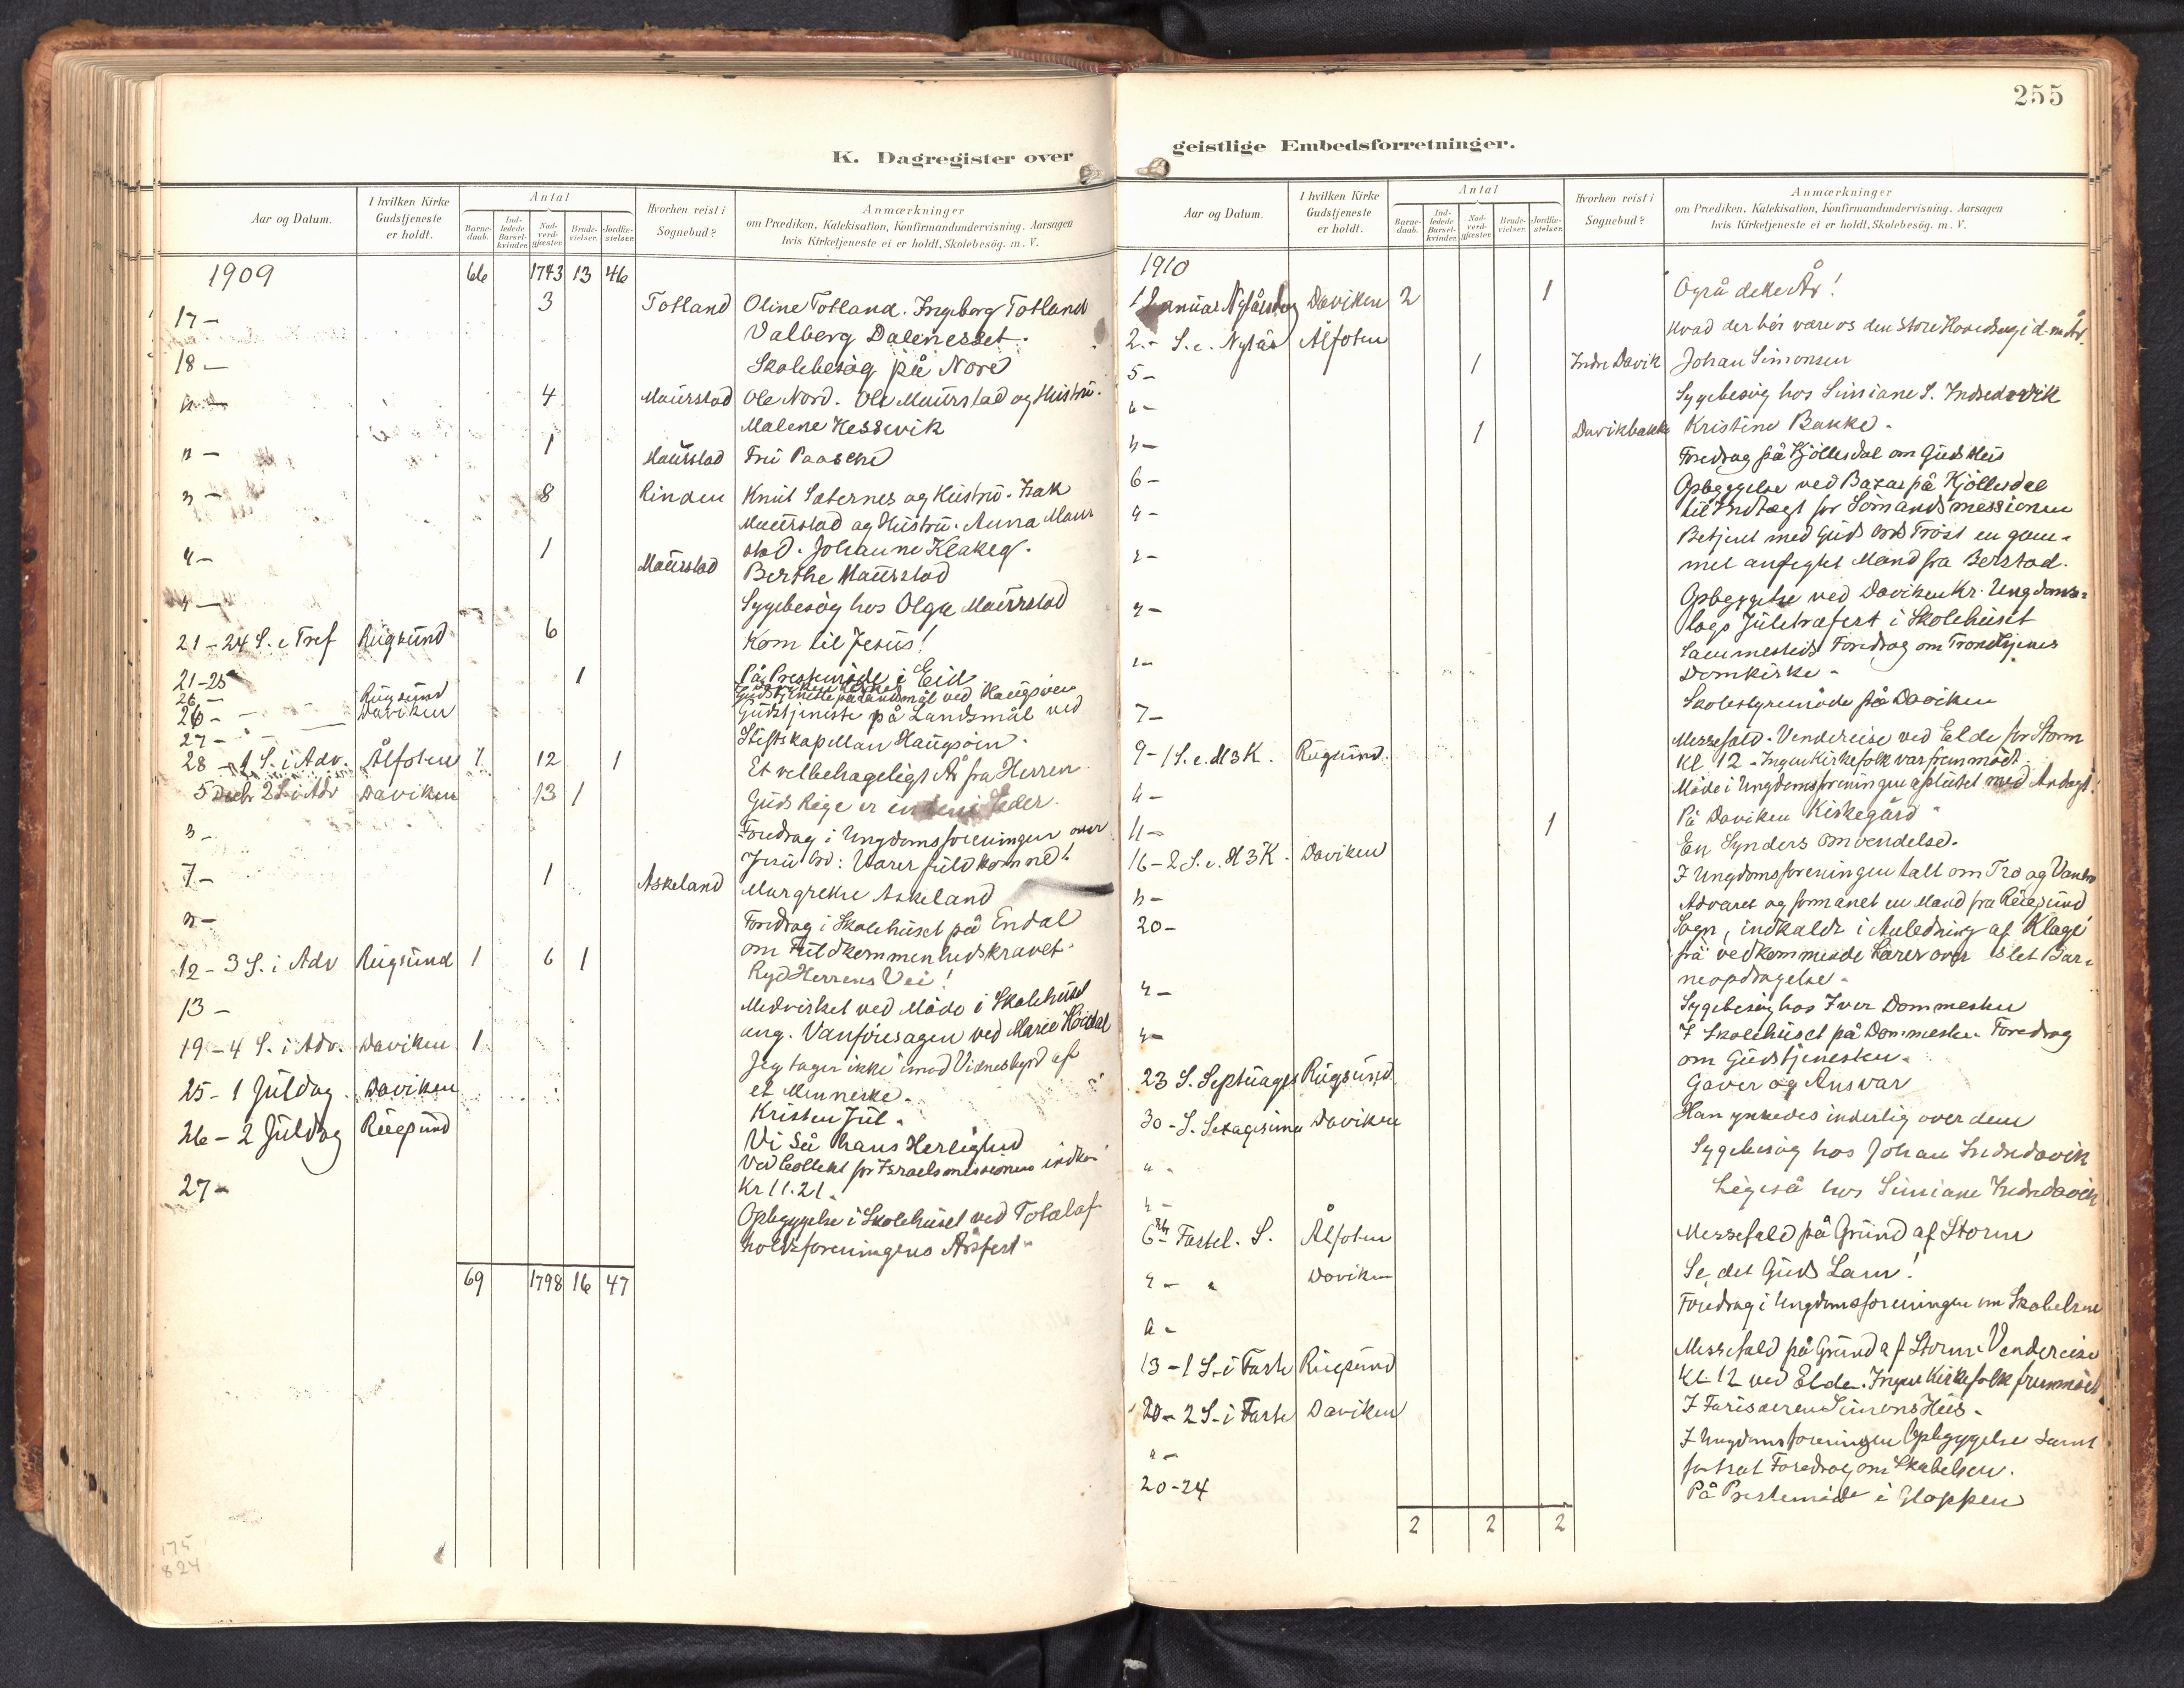 255
K. Dagregister over
geistlige Embedsforretninger.
Aar og Datum.
I hvilken Kirke Gudstjeneste er holdt.
Antal
Barne-daab.
Ind-ledede Barsel-kvinder.
Nad-verd-gjæster.
Brude-vielser.
Jordfæ-stelser.
Hvorhen reist i Sognebud?
Anmærkninger
om Prædiken, Katekisation, Konfirmandundervisning. Aarsagen
hvis Kirketjeneste ei er holdt, Skolebesøg. m. V.
1909 66 1743 13 46
17 - 3 Totland Oline Totland. Ingeborg Totland
Valberg Dalenesset.
18 - Skolebesøg på Nore
" - 4 Maurstad Ole Nord. Ole Maurstad og Hustru.
Malene Hessevik
" - 1 Maurstad Fru Paasche
" - 8 Rinden Knut Sæternes og Hustru. Isak
Maurstad og Hustru. Anna Maur
stad. Johanne Klakeg.
" - 1 Maurstad Berthe Maurstad
" - Sygebesøg hos Olga Maurstad
21 - 24 S. e Tref Rugsund 6 Kom til Jesus!
21-25 1 På Prestemøde i Eid
26 - Rugsund Gudstjeneste på Landsmål ved Haugsøen
26 - Daviken Gudstjeneste på Landsmål ved
27 - Stiftskapellan Haugsøen.
28 - 1 S. i Adv. Ålfoten 1 12 1 Et velbehageligt År fra Herren
5 Decbr 2 S. i Adv Daviken 13 1 Guds Rige er indeni Eder.
" - Foredrag i Ungdomsforeningen over
Jesu Ord: Værer fuldkomne!
7 - 1 Askeland Margrethe Askeland
" - Foredrag i Skolehuset på Endal
om Fuldkommenhedskravet.
12 - 3 S. i Adv Rugsund 1 6 1 Ryd Herrens Vei!
13 - Medvirket ved Møde i Skolehuset
ang. Vanføresagen ved Marie
19 - 4 S. i Adv. Daviken 1 Jeg tager ikke imod Vidnesbyrd af
et Menneske.
25 - 1 Juldag. Daviken Kristen Jul.
26 - 2 Juldag Rugsund Vi så hans Herlighed
Ved Collekt for Israelsmissionen indkom
Kr 11.21.
27 - Opbyggelse i Skolehuset ved Totalaf-
holdsforeningens Årsfest.
69 1798 16 47
Aar og Datum.
I hvilken Kirke Gudstjeneste er holdt.
Antal
Barne-daab.
Ind-ledede Barsel-kvinder.
Nad-verd-gjæster.
Brude-vielser.
Jordfæ-stelser.
Hvorhen reist i Sognebud?
Anmærkninger
om Prædiken, Katekisation, Konfirmandundervisning. Aarsagen
hvis Kirketjeneste ei er holdt, Skolebesøg. m. V.
1910
1 Januar Nytårsdag Daviken 2 1 Også dette År!
2. - S. e. Nytår Ålfoten Hvad der bør være os den store Hovedsag i d. nye År.
5 - 1 Indre Davik Johan Simonsen
" - Sygebesøg hos Simiane S. Indredavik
" - 1 Davikbakke Kristine Bakke.
6 - Foredrag på Kjöllesdal om Guds Hus
" - Opbyggelse ved Bazar på Kjöllesdal
til Indtægt for Sømandsmissionen
" - Betjent med Guds Ords Trøst en gam-
mel anfegtet Mand fra Berstad.
" - Opbyggelse ved Daviken Kr. Ungdoms-
lags Juletræfest i Skolehuset
" - Sammesteds Foredrag om Trondhjems
Domkirke.
7 - Skolestyremøde på Daviken
9 - 1 S. e. H 3 K. Rugsund. Messefald. Vendereise ved Elde for Storm
Kl 12 - Ingen Kirkefolk var fremmødt.
" - Møde i Ungdomsforeningen afsluttet med Andagt.
11 - 1 På Daviken Kirkegård
16 - 2 S. e. H 3 K. Daviken En Synders Omvendelse.
" - I Ungdomsforeningen talt om Tro og Vantro
20 - Advaret og formanet en Mand fra Rugsund
Sogn, indkaldt i Anledning af Klage
fra vedkommende Lærer over slet Bar-
neopdragelse.
" - Sygebesøg hos Iver Dommesten
" - I Skolehuset på Dommesten. Foredrag
om Gudstjenesten.
23 S. Septuages Rugsund. Gaver og Ansvar
30 - S. Sexagesima Daviken Han ynkedes inderlig over dem
" - Sygebesøg hos Johan Indredavik
" - Ligeså hos Simiane Indredavik
6 Febr Fastel. S. Ålfoten Messefald på Grund af Storm
" - " Daviken Se det Guds Lam!
" - Foredrag i Ungdomsforeningen om Skabelsen
13 - 1 S. i Faste Rugsund Messefald på Grund af Storm. Vendereise
Kl 12 ved Elde. Ingen Kirkefolk fremmødt.
20 - 2 S. i Faste Daviken I Farisæeren Simons Hus.
" - I Ungdomsforeningen Opbyggelse samt
fortsat Foredrag om Skabelsen.
20-24 På Prestemøde i Gloppen
2 2 2
175
824